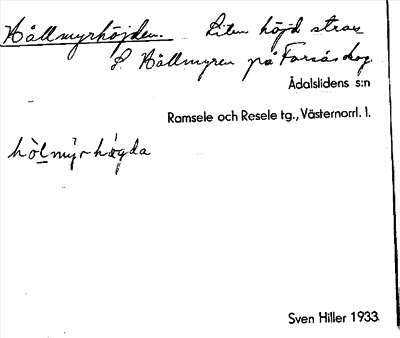 Hållmyrhöjden. Liten höjd strax
S. Hållmyren på Forsås skog.
Ådalslidens s:n
Ramsele och Resele tg., Västernorrl. l.
hòlmyrhøgda
Sven Hiller 1933